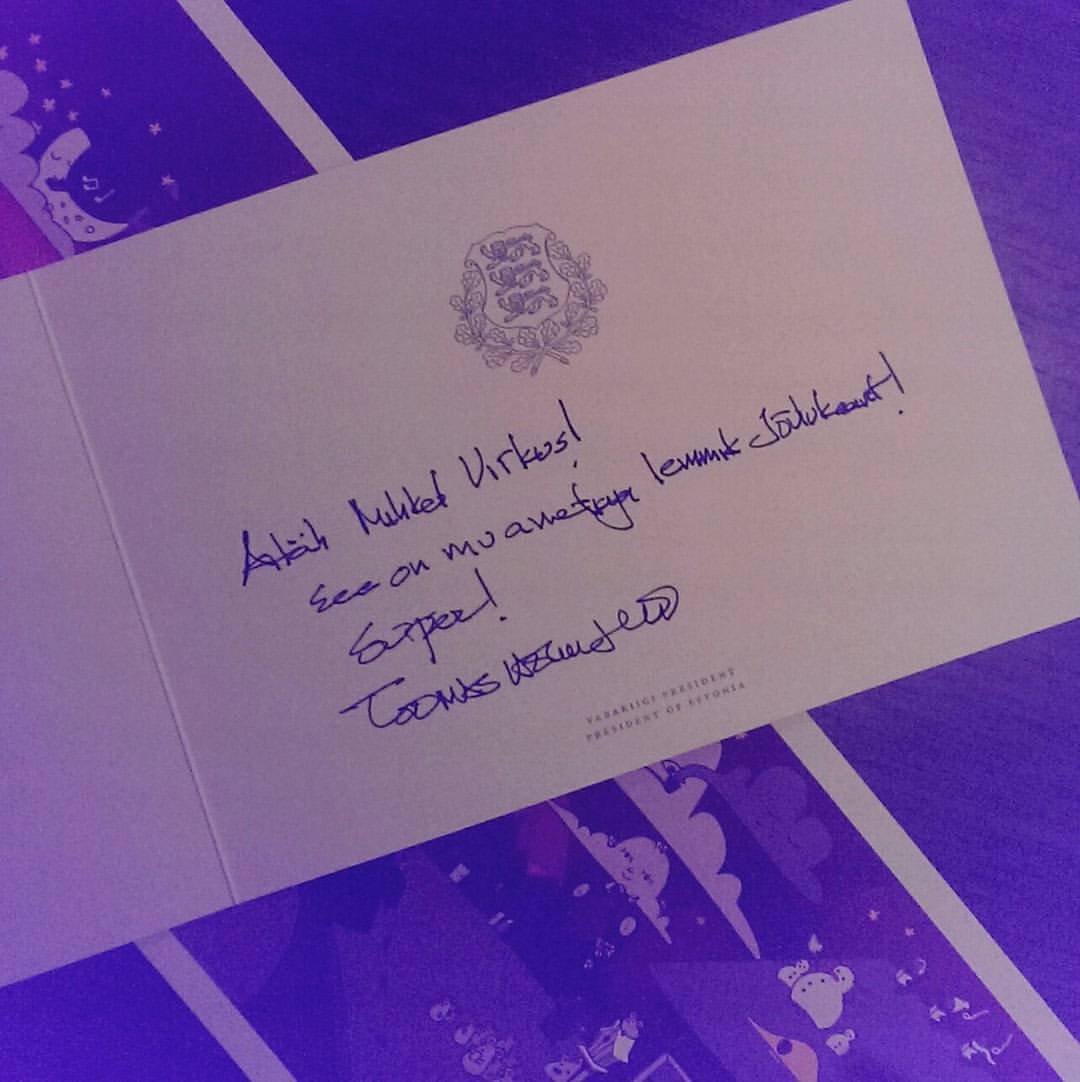 Aitäh Mihkel Virkus!
See on mu ametiaja lemmik Jõulukaart!
Super!
Toomas Hendrik
VABARIIGI PRESIDENT
PRESIDENT OF ESTONIA